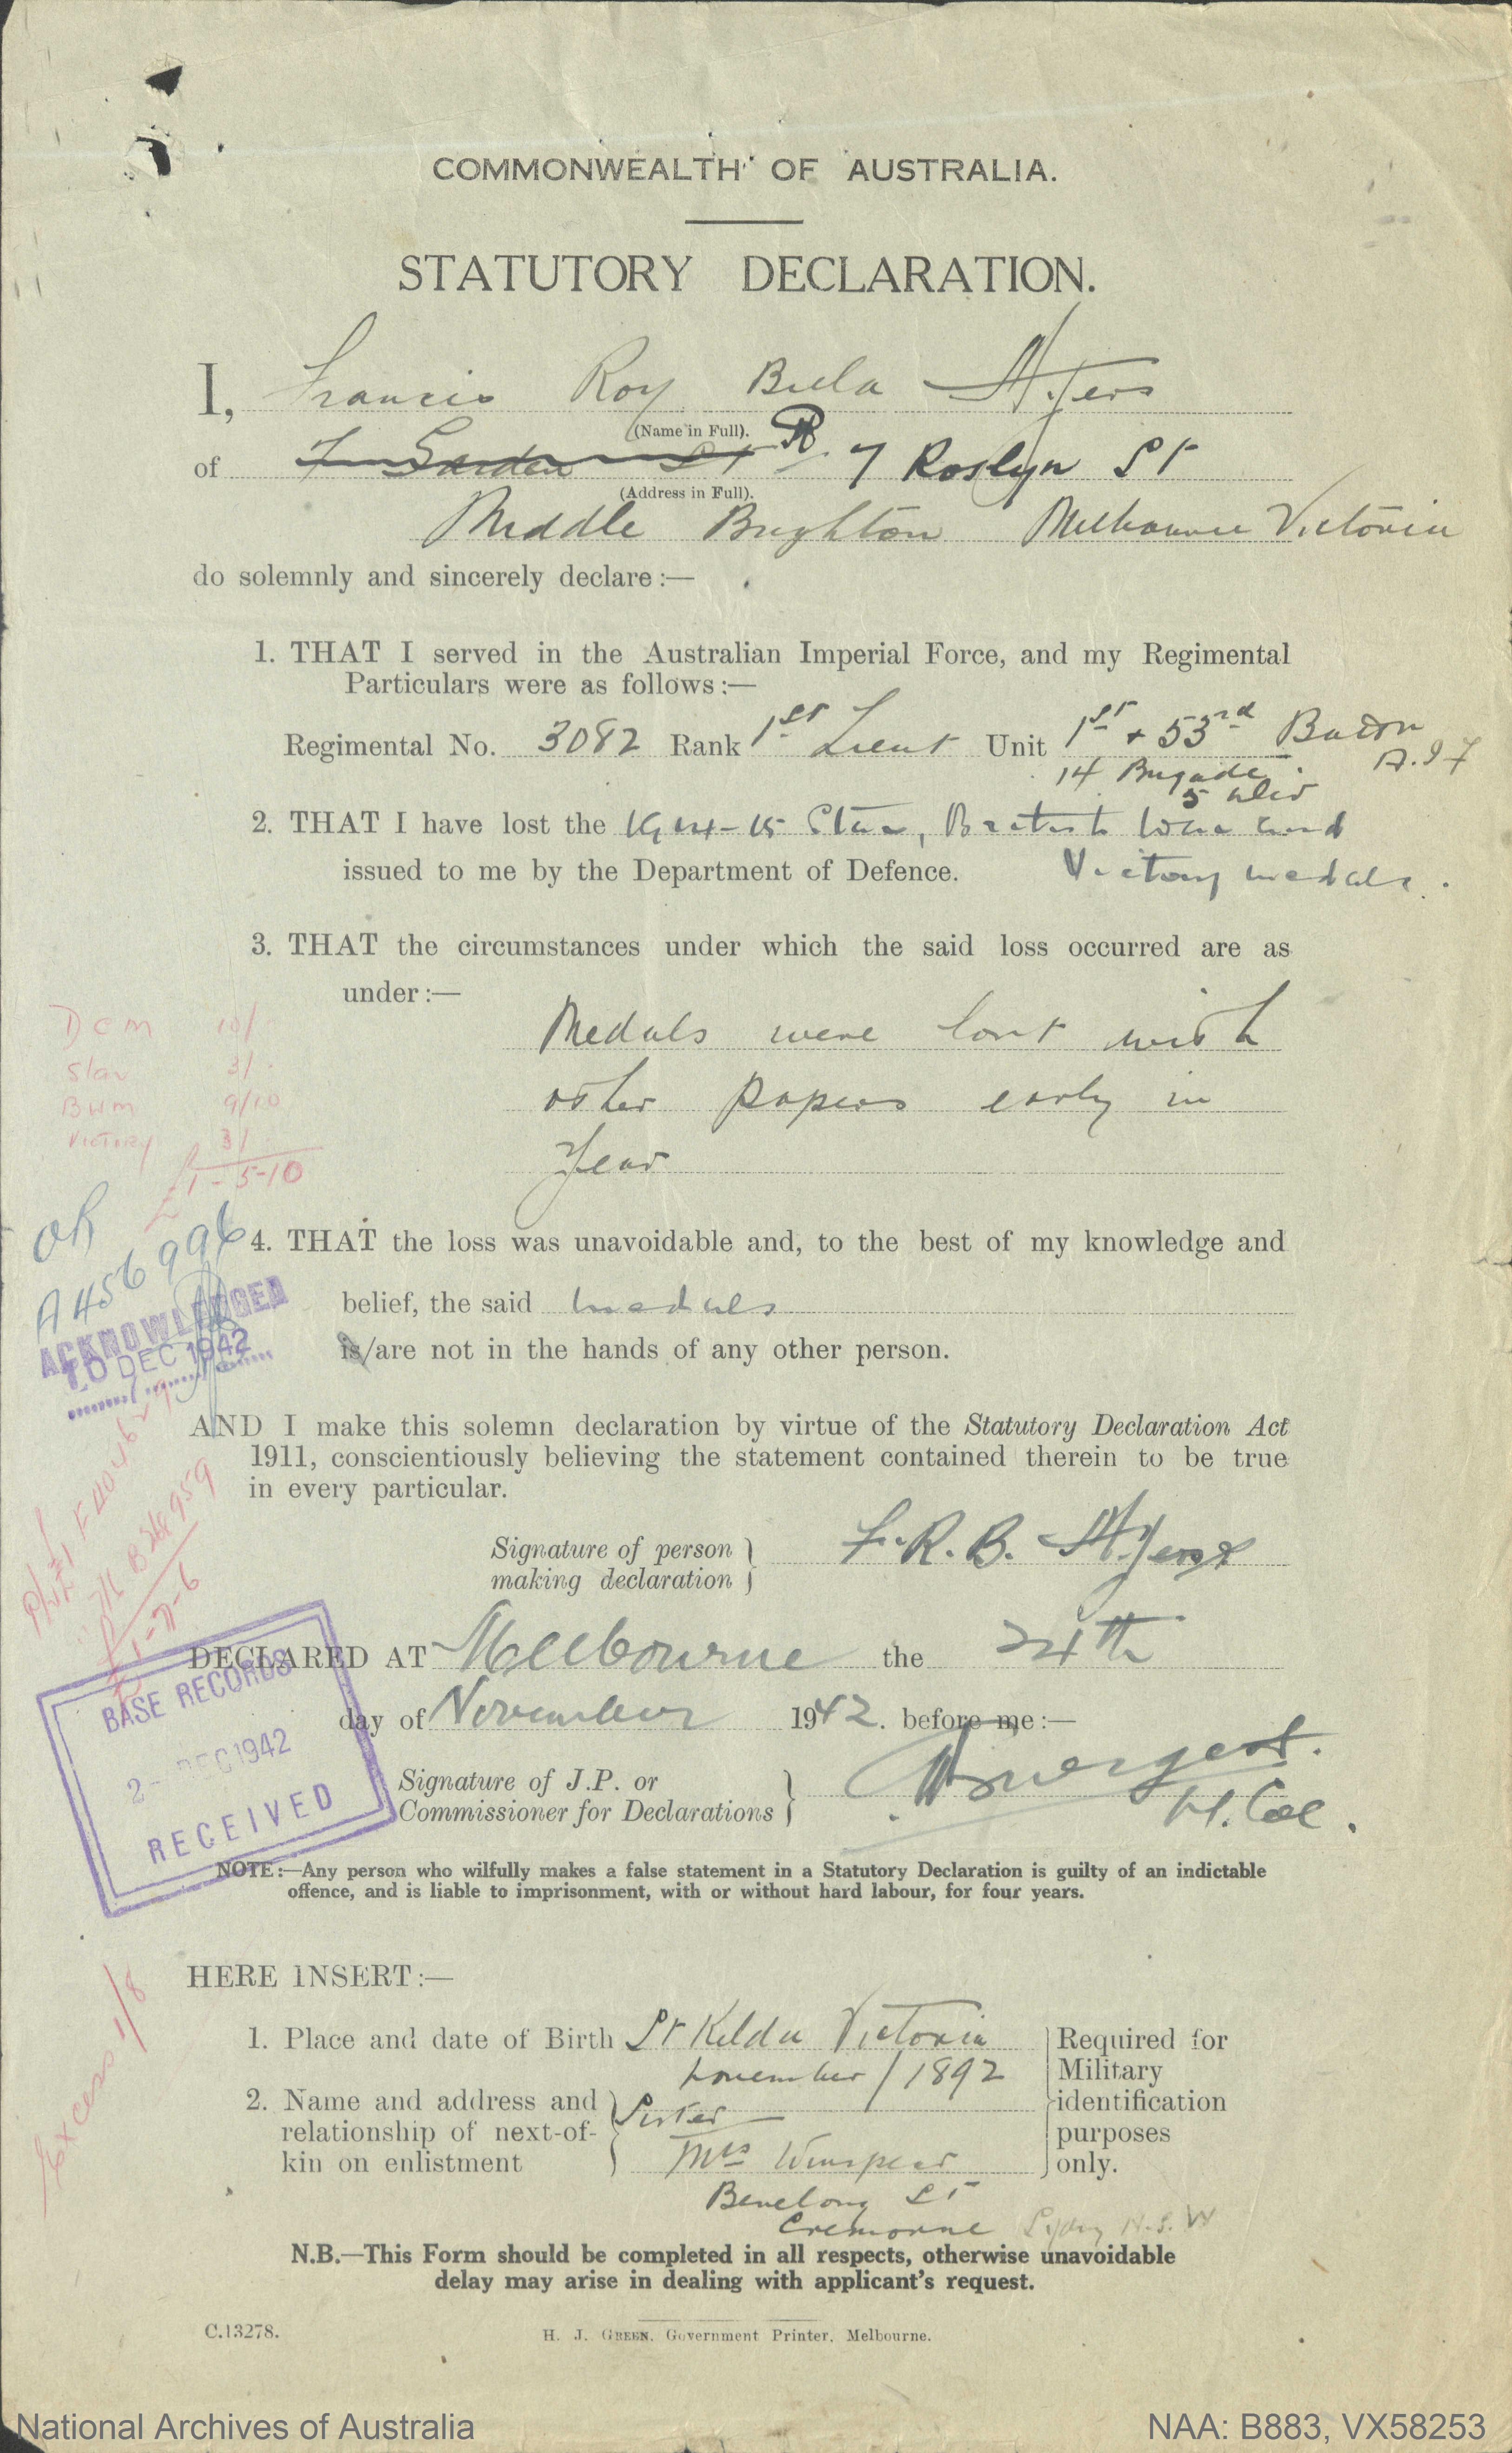 COMMONWEALTH OF AUSTRALIA.
STATUTORY DECLARATION.
I, Francis Roy Bula Styers
(Name in Full).
of 7 Garden St 7 Roslyn St
(Address in Full).
Middle Brighton Melbourne Victoria
do solemnly and sincerely declare:—
1. THAT I served in the Australian Imperial Force, and my Regimental
Particulars were as follows:—
Regimental No. 3082 Rank 1st Lieut Unit 1st + 53rd Battn
A.I.F
14 Brigade
5 Div
2. THAT I have lost the 1914-15 Star, British War and
issued to me by the Department of Defence. Victory medals.
3. THAT the circumstances under which the said loss occurred are as
under:—
Medals were lost with
other papers early in
year
DCM 10/
Star 3/
BWM 9/10
Victory 3/
£1-5-10
OR
A456996
ACKNOWLEDGED
10 DEC 1942
4. THAT the loss was unavoidable and, to the best of my knowledge and
belief, the said medals
is/are not in the hands of any other person.
AND I make this solemn declaration by virtue of the Statutory Declaration Act
1911, conscientiously believing the statement contained therein to be true
in every particular.
Signature of person
making declaration
F.R.B. Styers
DECLARED AT Melbourne the 24th
day of November 1942. before me:—
Signature of J.P. or
Commissioner for Declarations
BASE RECORDS
2- DEC 1942
RECEIVED
NOTE:—Any person who wilfully makes a false statement in a Statutory Declaration is guilty of an indictable
offence, and is liable to imprisonment, with or without hard labour, for four years.
Excess 1/8
HERE INSERT:—
1. Place and date of Birth St Kilda Victoria
November / 1892
2. Name and address and
relationship of next-of-
kin on enlistment
Sister
Mrs Winspear
Benelong St
Cremorne Sydney N.S.W
Required for
Military
identification
purposes
only.
N.B.—This Form should be completed in all respects, otherwise unavoidable
delay may arise in dealing with applicant's request.
C.13278.
H. J. GREEN, Government Printer, Melbourne.
National Archives of Australia
NAA: B883, VX58253